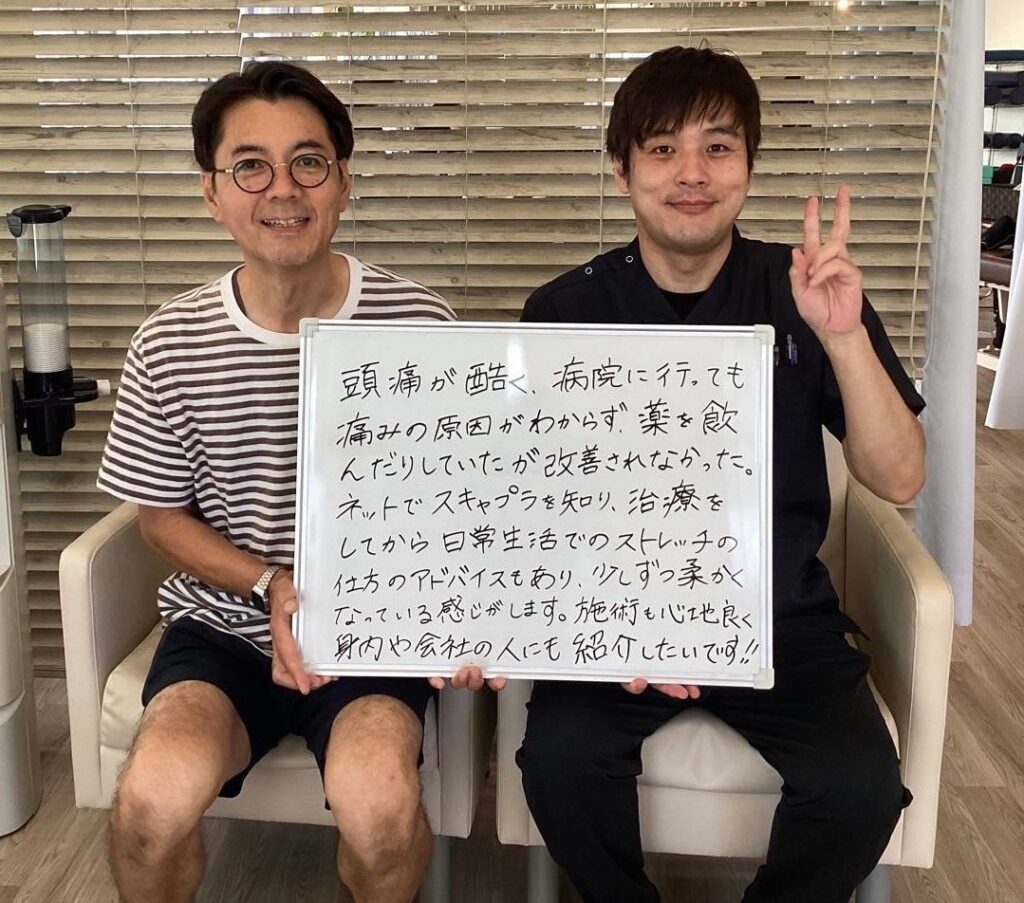 頭痛が酷く、病院に行っても
痛みの原因がわからず、薬を飲
んだりしていたが改善されなかった。
ネットでスキャプラを知り、治療を
してから日常生活でのストレッチの
仕方のアドバイスもあり、少しずつ柔かく
なっている感じがします。施術も心地良く
身内や会社の人にも紹介したいです!!